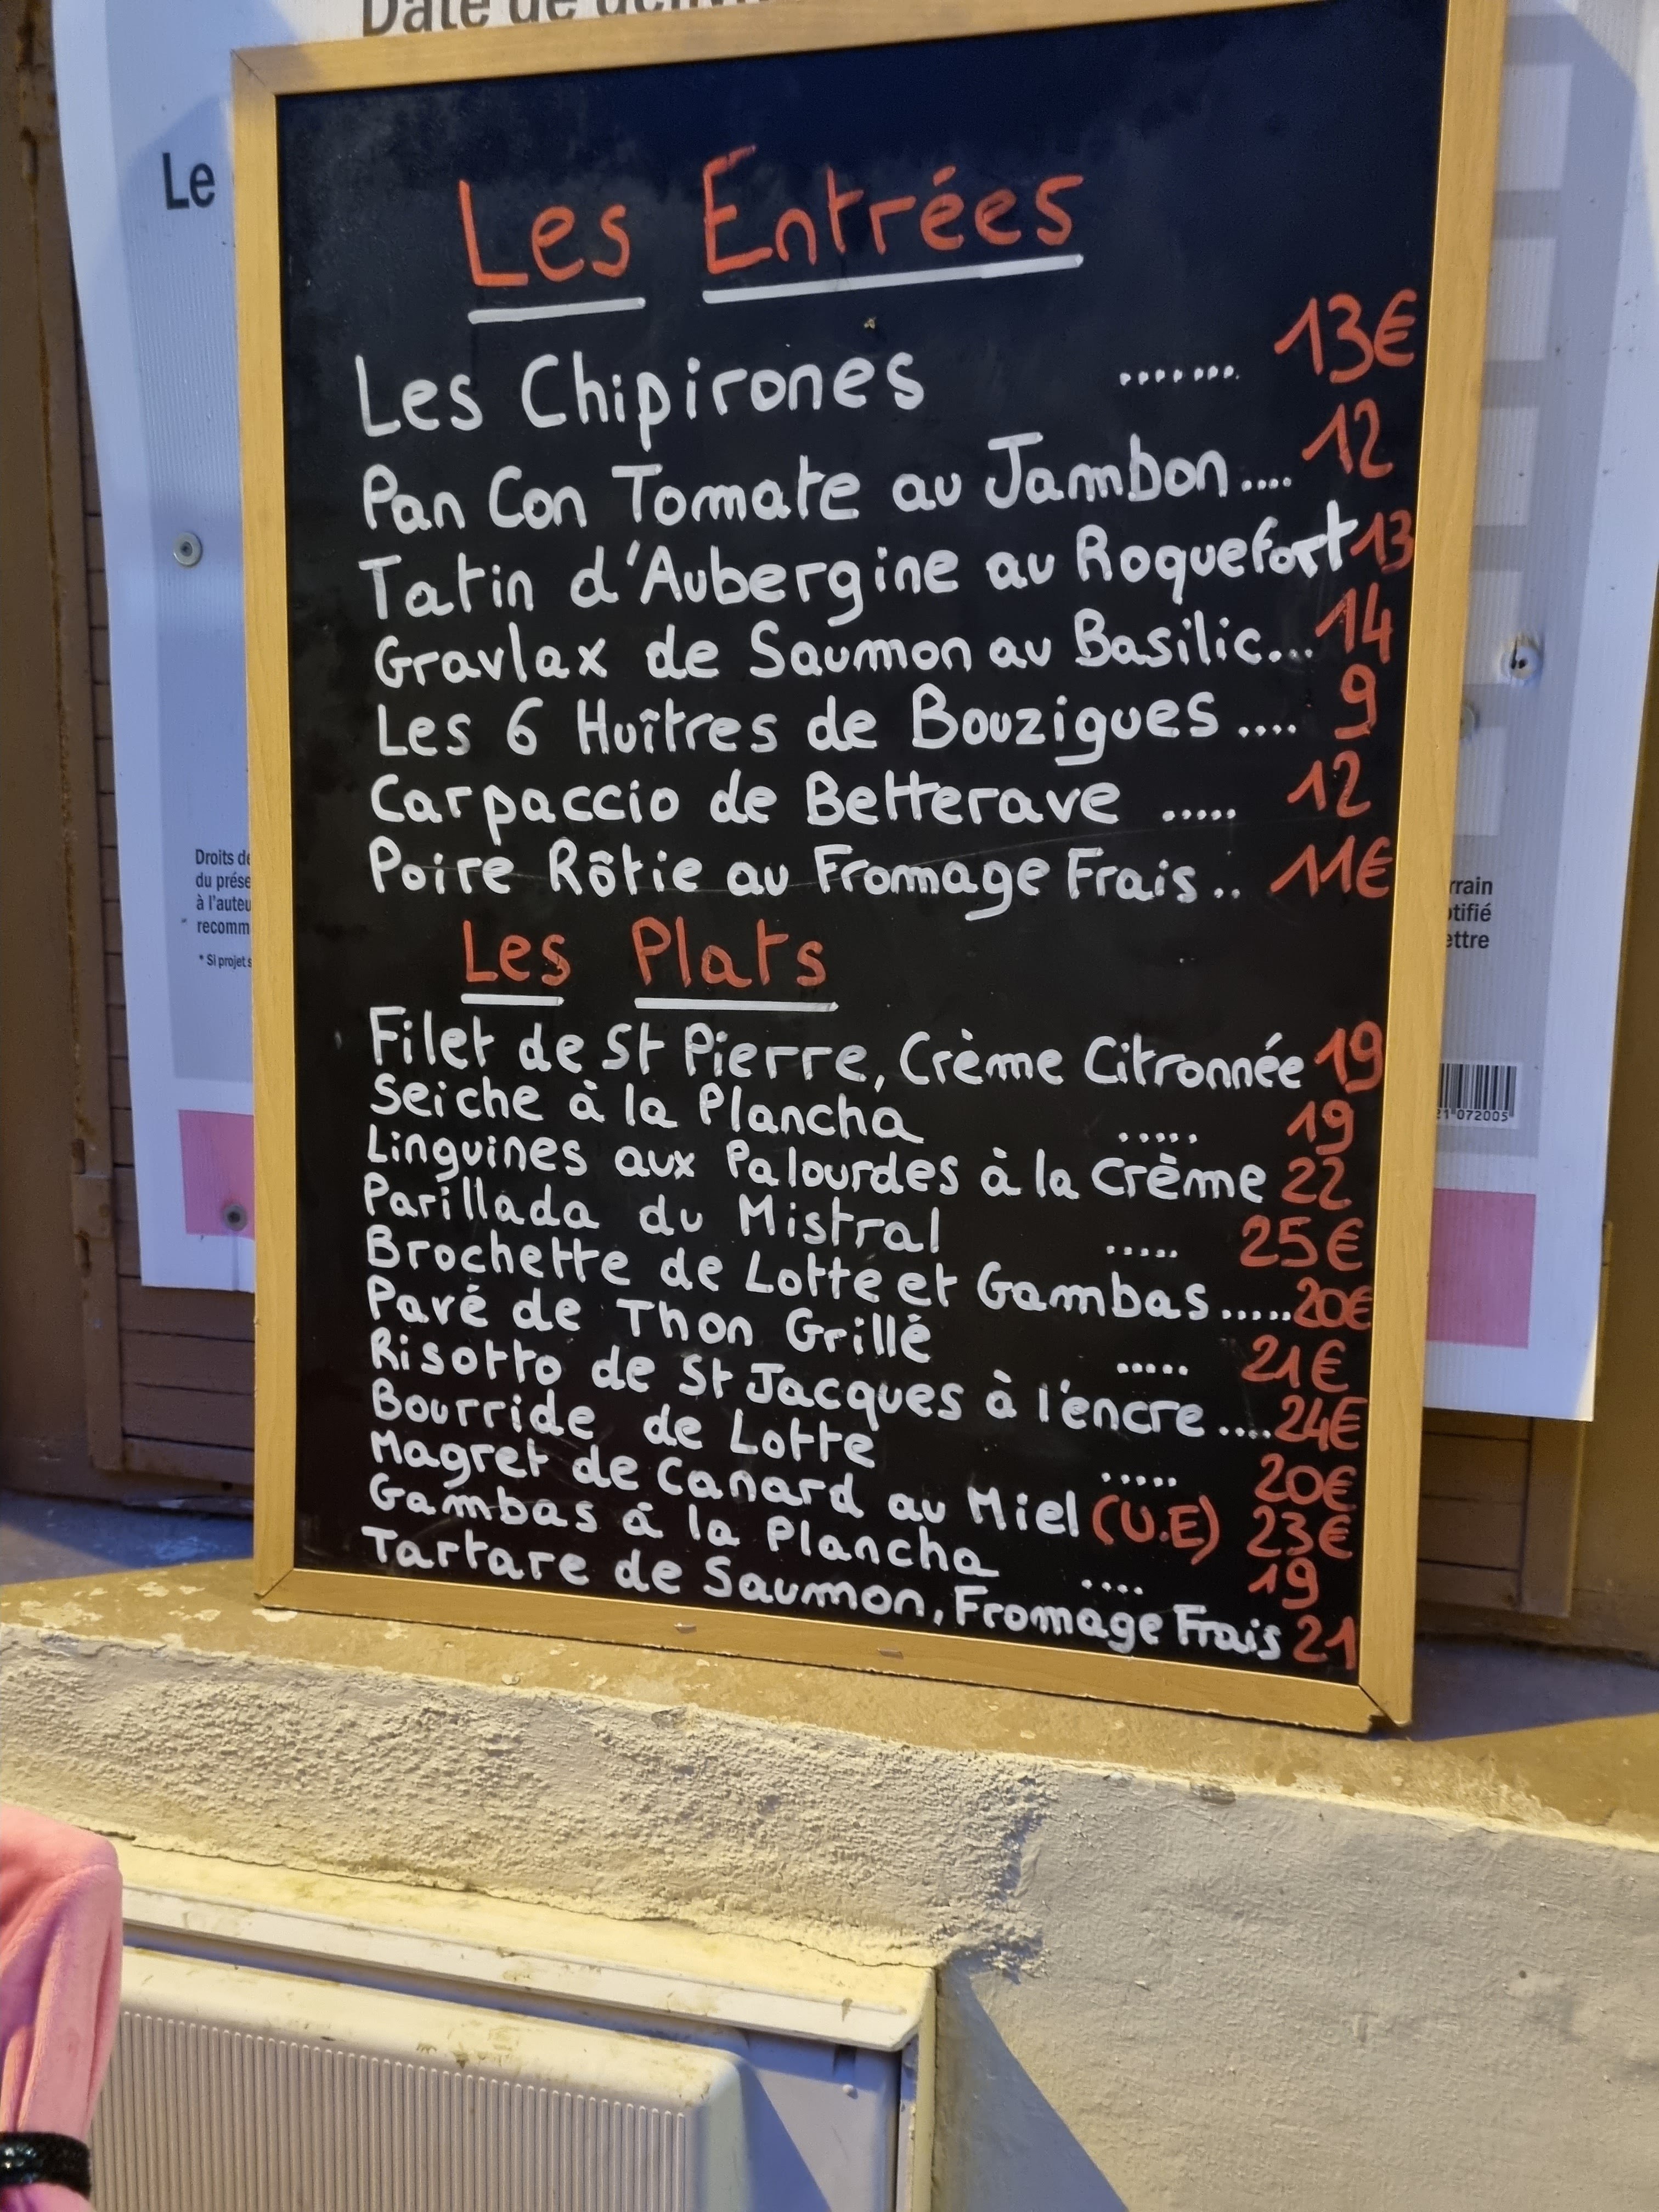 Le
Les Entrées
Les Chipirones ....... 13€
Pan Con Tomate au Jambon.... 12
Tatin d'Aubergine au Roquefort 13
Gravlax de Saumon au Basilic... 14
Les 6 Huîtres de Bouzigues .... 9
Carpaccio de Betterave ..... 12
Poire Rôtie au Fromage Frais.. 11€
Les Plats
Filet de St Pierre, Crème Citronnée 19
Seiche à la Plancha ..... 19
Linguines aux Palourdes à la Crème 22
Parillada du Mistral ..... 25€
Brochette de Lotte et Gambas..... 20€
Pavé de Thon Grillé ..... 21€
Risotto de St Jacques à l'encre.... 24€
Bourride de Lotte ..... 20€
Magret de Canard au Miel (U.E) 23€
Gambas à la Plancha .... 19
Tartare de Saumon, Fromage Frais 21
Droits de
du prése
à l'auteu
recomm
* Si projet s
rrain
otifié
ettre
21 072005